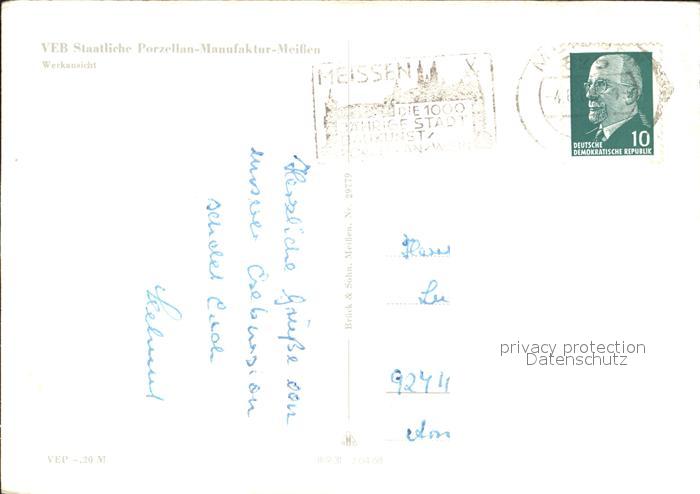 VEB Staatliche Porzellan-Manufaktur-Meißen
Werkansicht
MEISSEN
DIE 1000
JÄHRIGE STADT
10
DEUTSCHE
DEMOKRATISCHE REPUBLIK
Herzliche Grüße von
unserer Exkursion
sendet Euch
Helmut
Brück & Sohn, Meißen, Nr. 29779
Herrn
9274
privacy protection
Datenschutz
VEP -,20 M